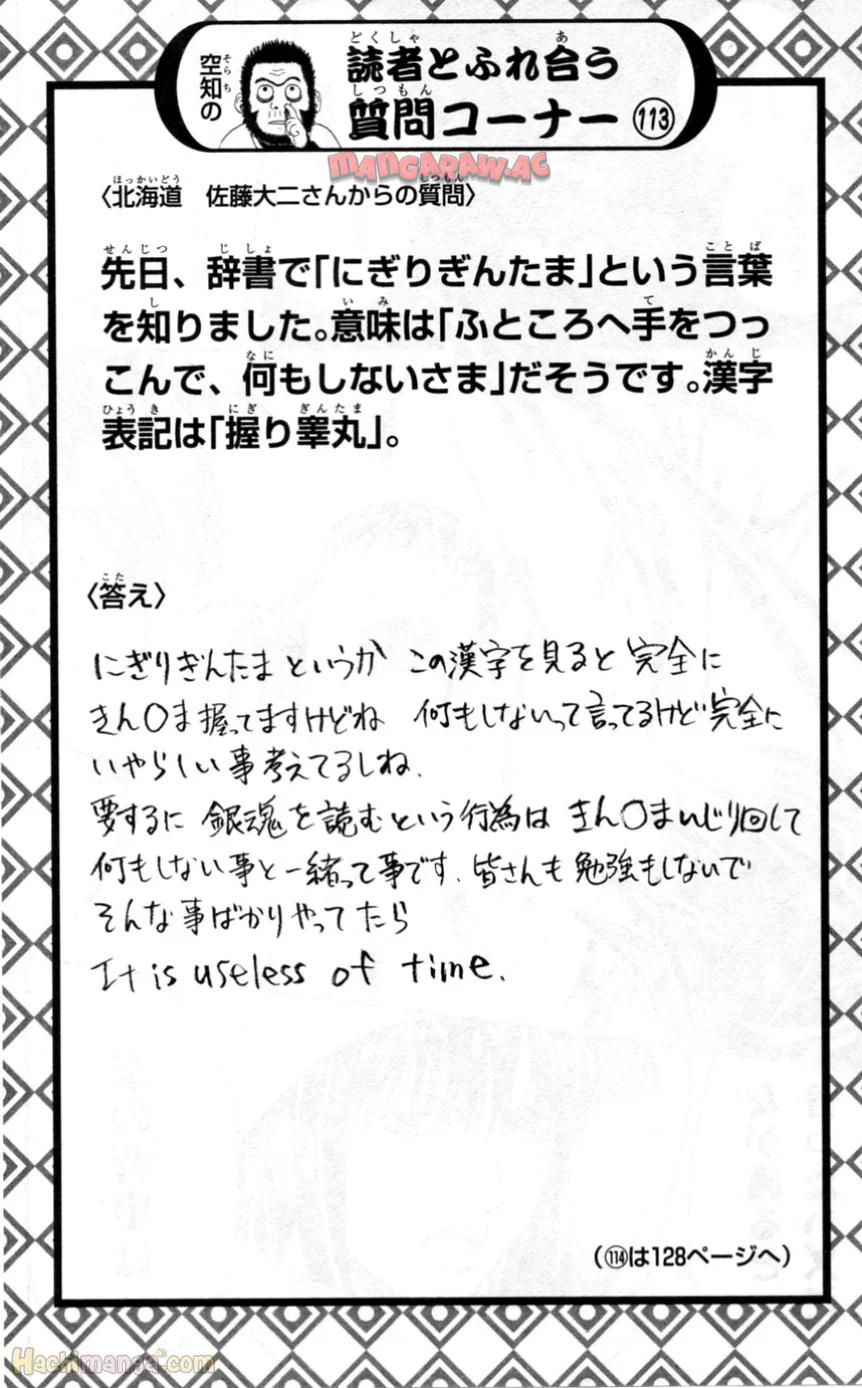 空知の
読者とふれ合う
質問コーナー 113
MANGARAW.AC
〈北海道　佐藤大二さんからの質問〉
先日、辞書で「にぎりぎんたま」という言葉
を知りました。意味は「ふところへ手をつっ
こんで、何もしないさま」だそうです。漢字
表記は「握り睾丸」。
〈答え〉
にぎりぎんたま というか この漢字を見ると 完全に
きん〇ま握ってますけどね 何もしないって言ってるけど完全に
いやらしい事考えてるしね.
要するに 銀魂を読むという行為は きん〇まいじり回して
何もしない事と一緒って事です. 皆さんも勉強もしないで
そんな事ばかりやってたら
It is useless of time.
(114は128ページへ)
Hachimanga.com